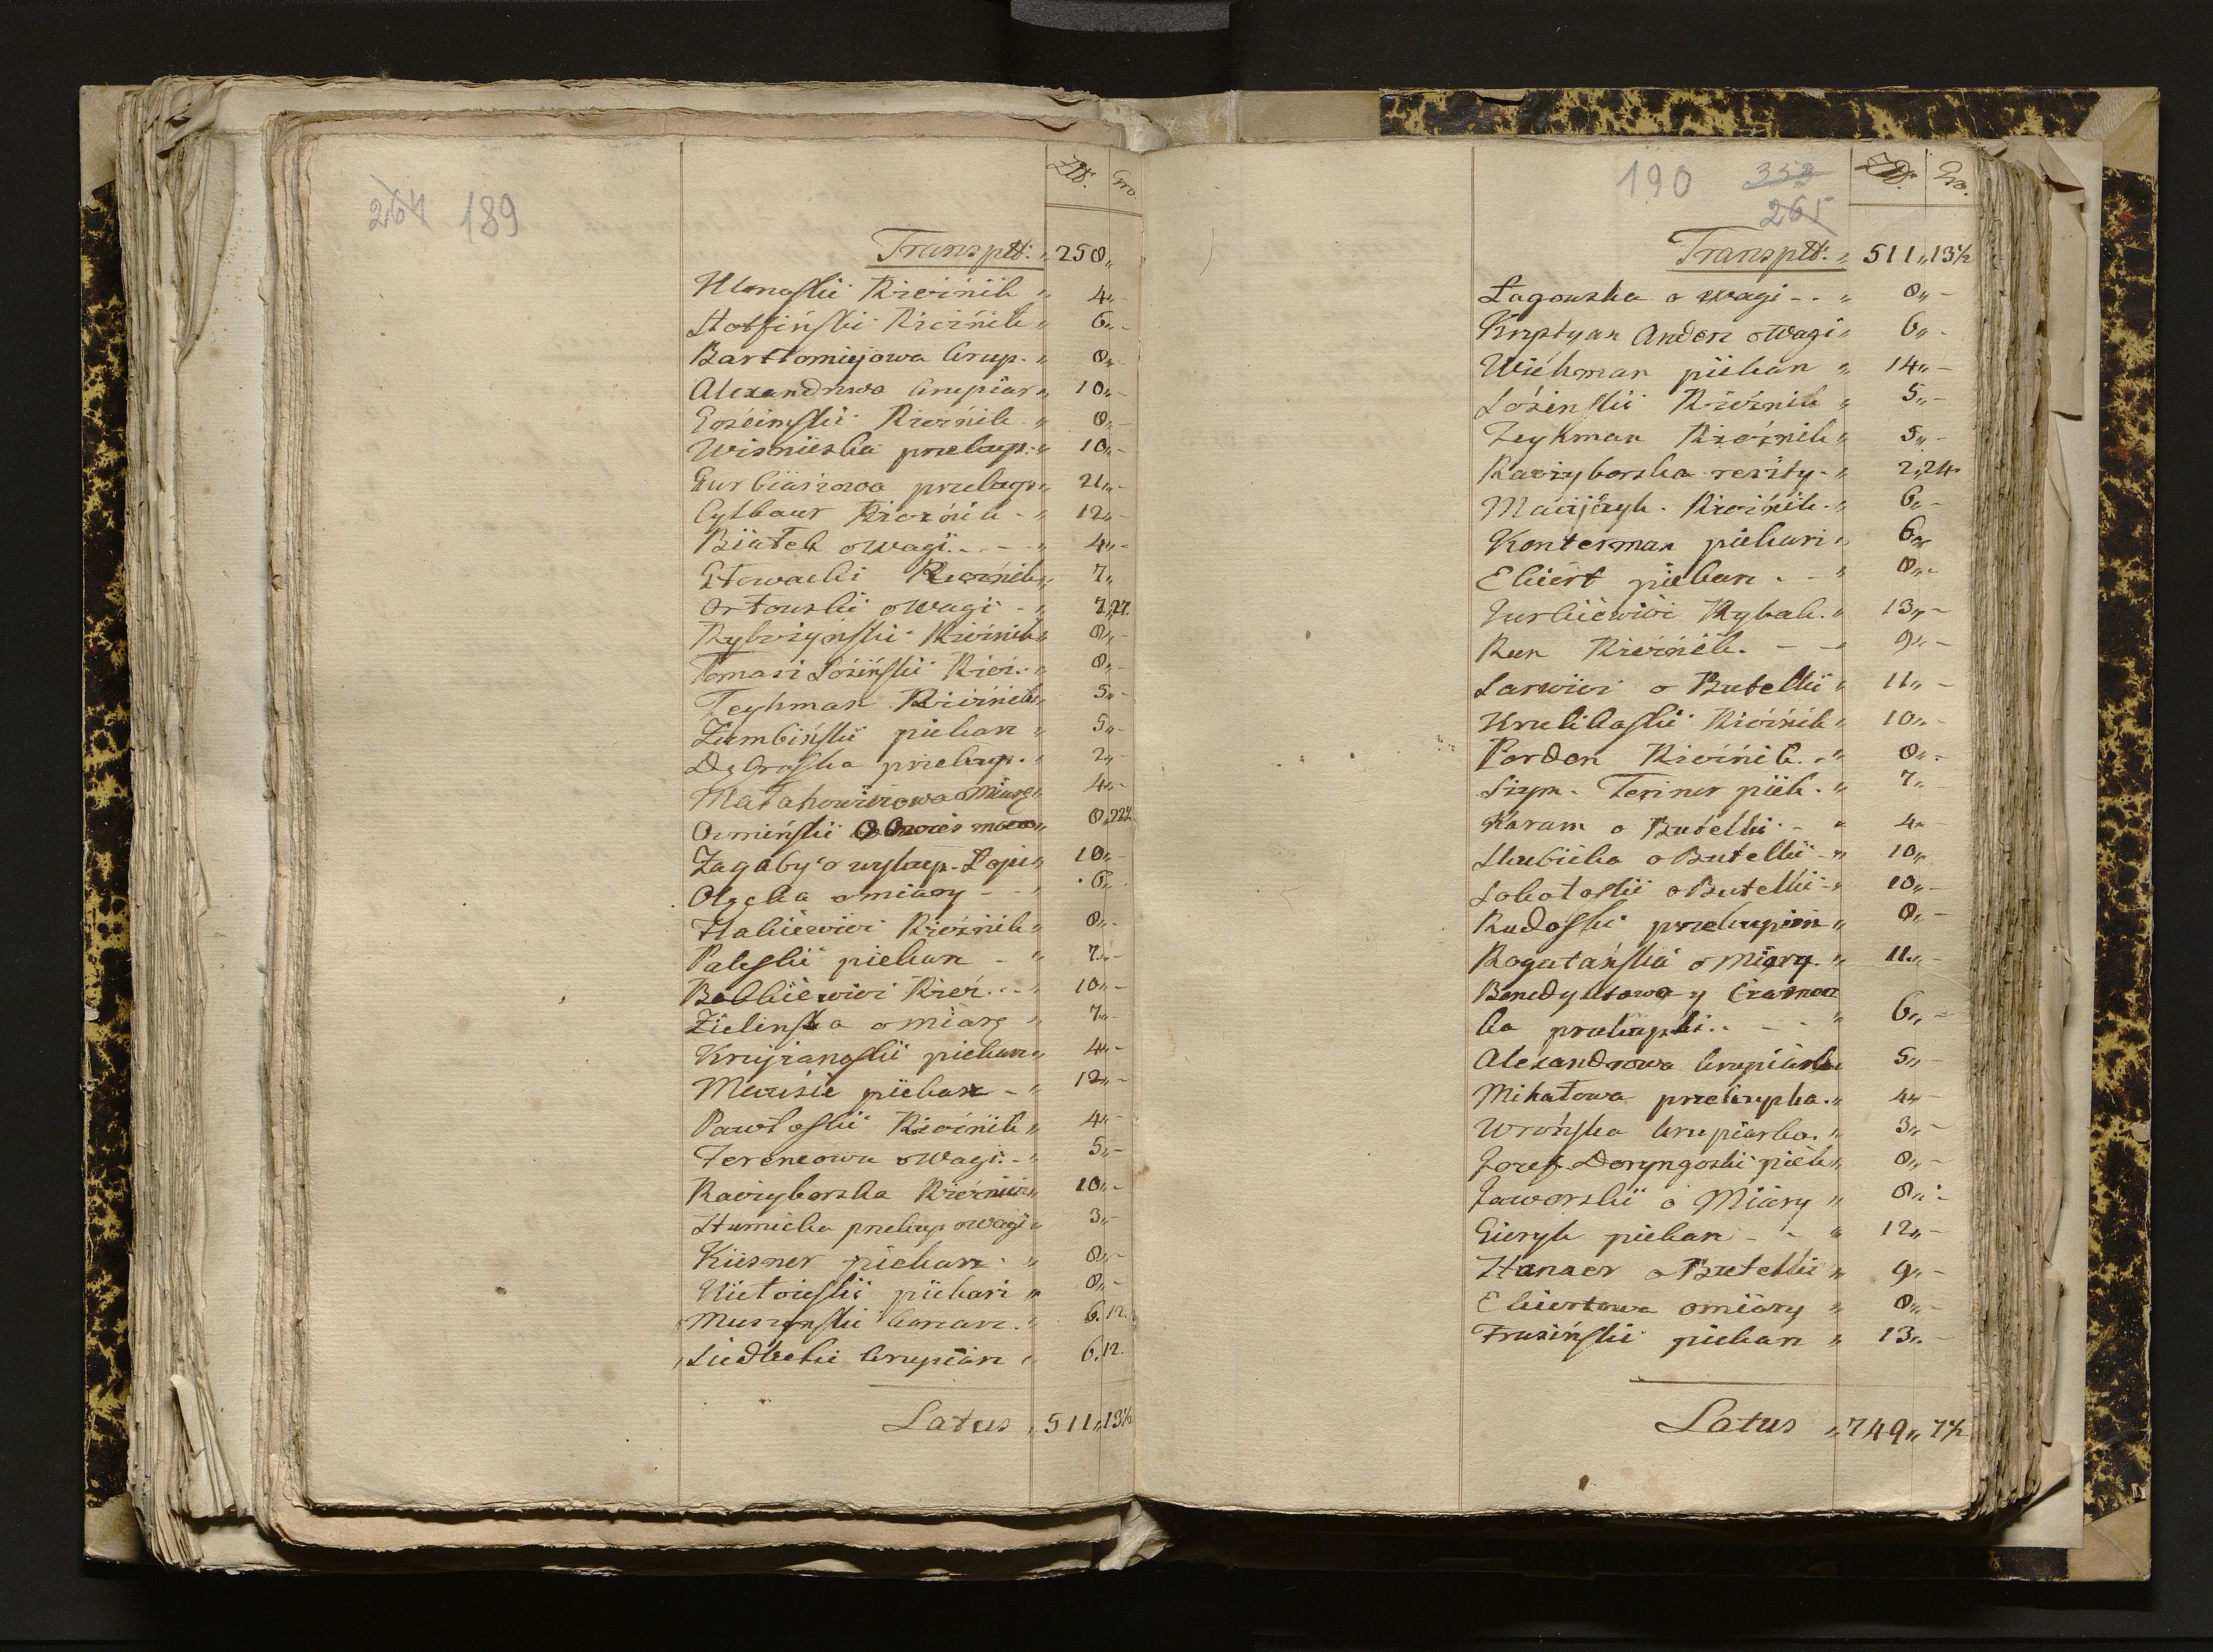 264 189
Złt: Gro.
Transplt: „ 250„
Klonoskii Rzeźnik „ 4„-
Stoffińskii Rzeźnik „ 6„-
Bartłomiejowa krup. „ 8„-
Alexandrwa krupiar „ 10„-
Gościmskii Rzeźnik „ 8„-
Wisnieska przekup. „ 10„-
Gurbiaszowa przekup „ 21„-
Cylbaur Rzeźnik - „ 12„-
Białek o wagi - - „ 4„-
Głowacki Rzeźnik „ 7„
Orłouski o wagi - „ 7„27.
Rybczyński Rzeźnik „ 8„-
Tomasz Łoziński Rzeź. „ 8„-
Teyhman Rzeźnik „ 5„-
Zumbiński piekarz „ 5„-
Dąbroska przekup. „ 2„-
Małahowiczowa o miarę „ 4„-
Oźmińskii „ 8„22½
Zagaby o wykup. Łoju „ 10„-
Olszka o miary - - „ 6„
Hakiewicz Rzeźnik „ 8„-
Paleskii piekarz - „ 7„-
Bolkiewicz Rzeź. - - „ 10„-
Zielinska o miarę „ 7„-
Krzyżanoskii piekarz „ 4„-
Maruśie piekarz - „ 12„-
Pawłoskii Rzeźnik „ 4„-
Ferencowa o wagi - „ 5„-
Raczyborska Rzeźnicz „ 10„-
Stumicka przekup o wagi „ 3„-
Kiesner piekarz „ 8„-
Kietoieskii piekarz „ 8„-
Muszynskii konarz. „ 6.12.
Siedlecki krupiarz „ 6.12.
Latus „ 511„13½
190 353
265
Złt. Gro.
Transplt: „ 511„13½
Łagouska o wagi - - „ 8„-
Krystyan Anders o wagi „ 6„-
Wiehman piekarz „ 14„-
Łozinskii Rzeźnik „ 5„-
Zeyhman Rzeźnik „ 5„-
Raczyborska reszty - „ 2„24.
Maciejczyk Rzeźnik „ 6„-
Konterman piekarz „ 6„
Ekiert piekarz - - „ 8„-
Jurkiewicz Rybak. „ 13„-
Run Rzeźnik. - - 9„-
Larwicz o Butelki „ 11„-
Krulikoskii Rzeźnik „ 10„-
Pordon Rzeźnik. „ 8„-
Szym. Teriner piek. „ 7„
Karam o Butelki - „ 4„
Skubicka o Butelki - „ 10„
Łokotoskii o Butelki - „ 10„-
Rudoskii przekupień „ 8„-
Rogatańskii o Miary „ 11„-
Benedyktowa y Czarnec
ka przekupki. - - „ 6„-
Alexandrowa krupiarka „ 5„-
Mihałowa przekupka. „ 4„-
Wrońska krupiarka. „ 3„-
Jozef Doryngoski piek „ 8„-
Jaworskii o Miary „ 8„-
Gieryk piekarz - - „ 12„-
Hanaer o Butelki „ 9„-
Ekiertowa o miary „ 8„-
Fruzińskii piekarz „ 13„-
Latus „ 749„ 7½